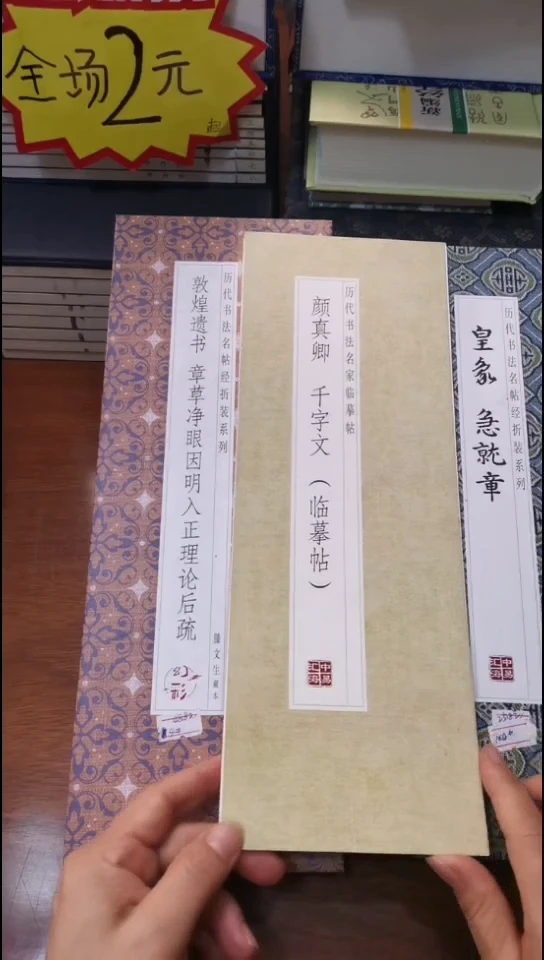 全场2元
起
历代书法名帖经折装系列
敦煌遗书 章草净眼因明入正理论后疏
幻彩
历代书法名家临摹帖
颜真卿 千字文 (临摹帖)
历代书法名帖经折装系列
皇象 急就章